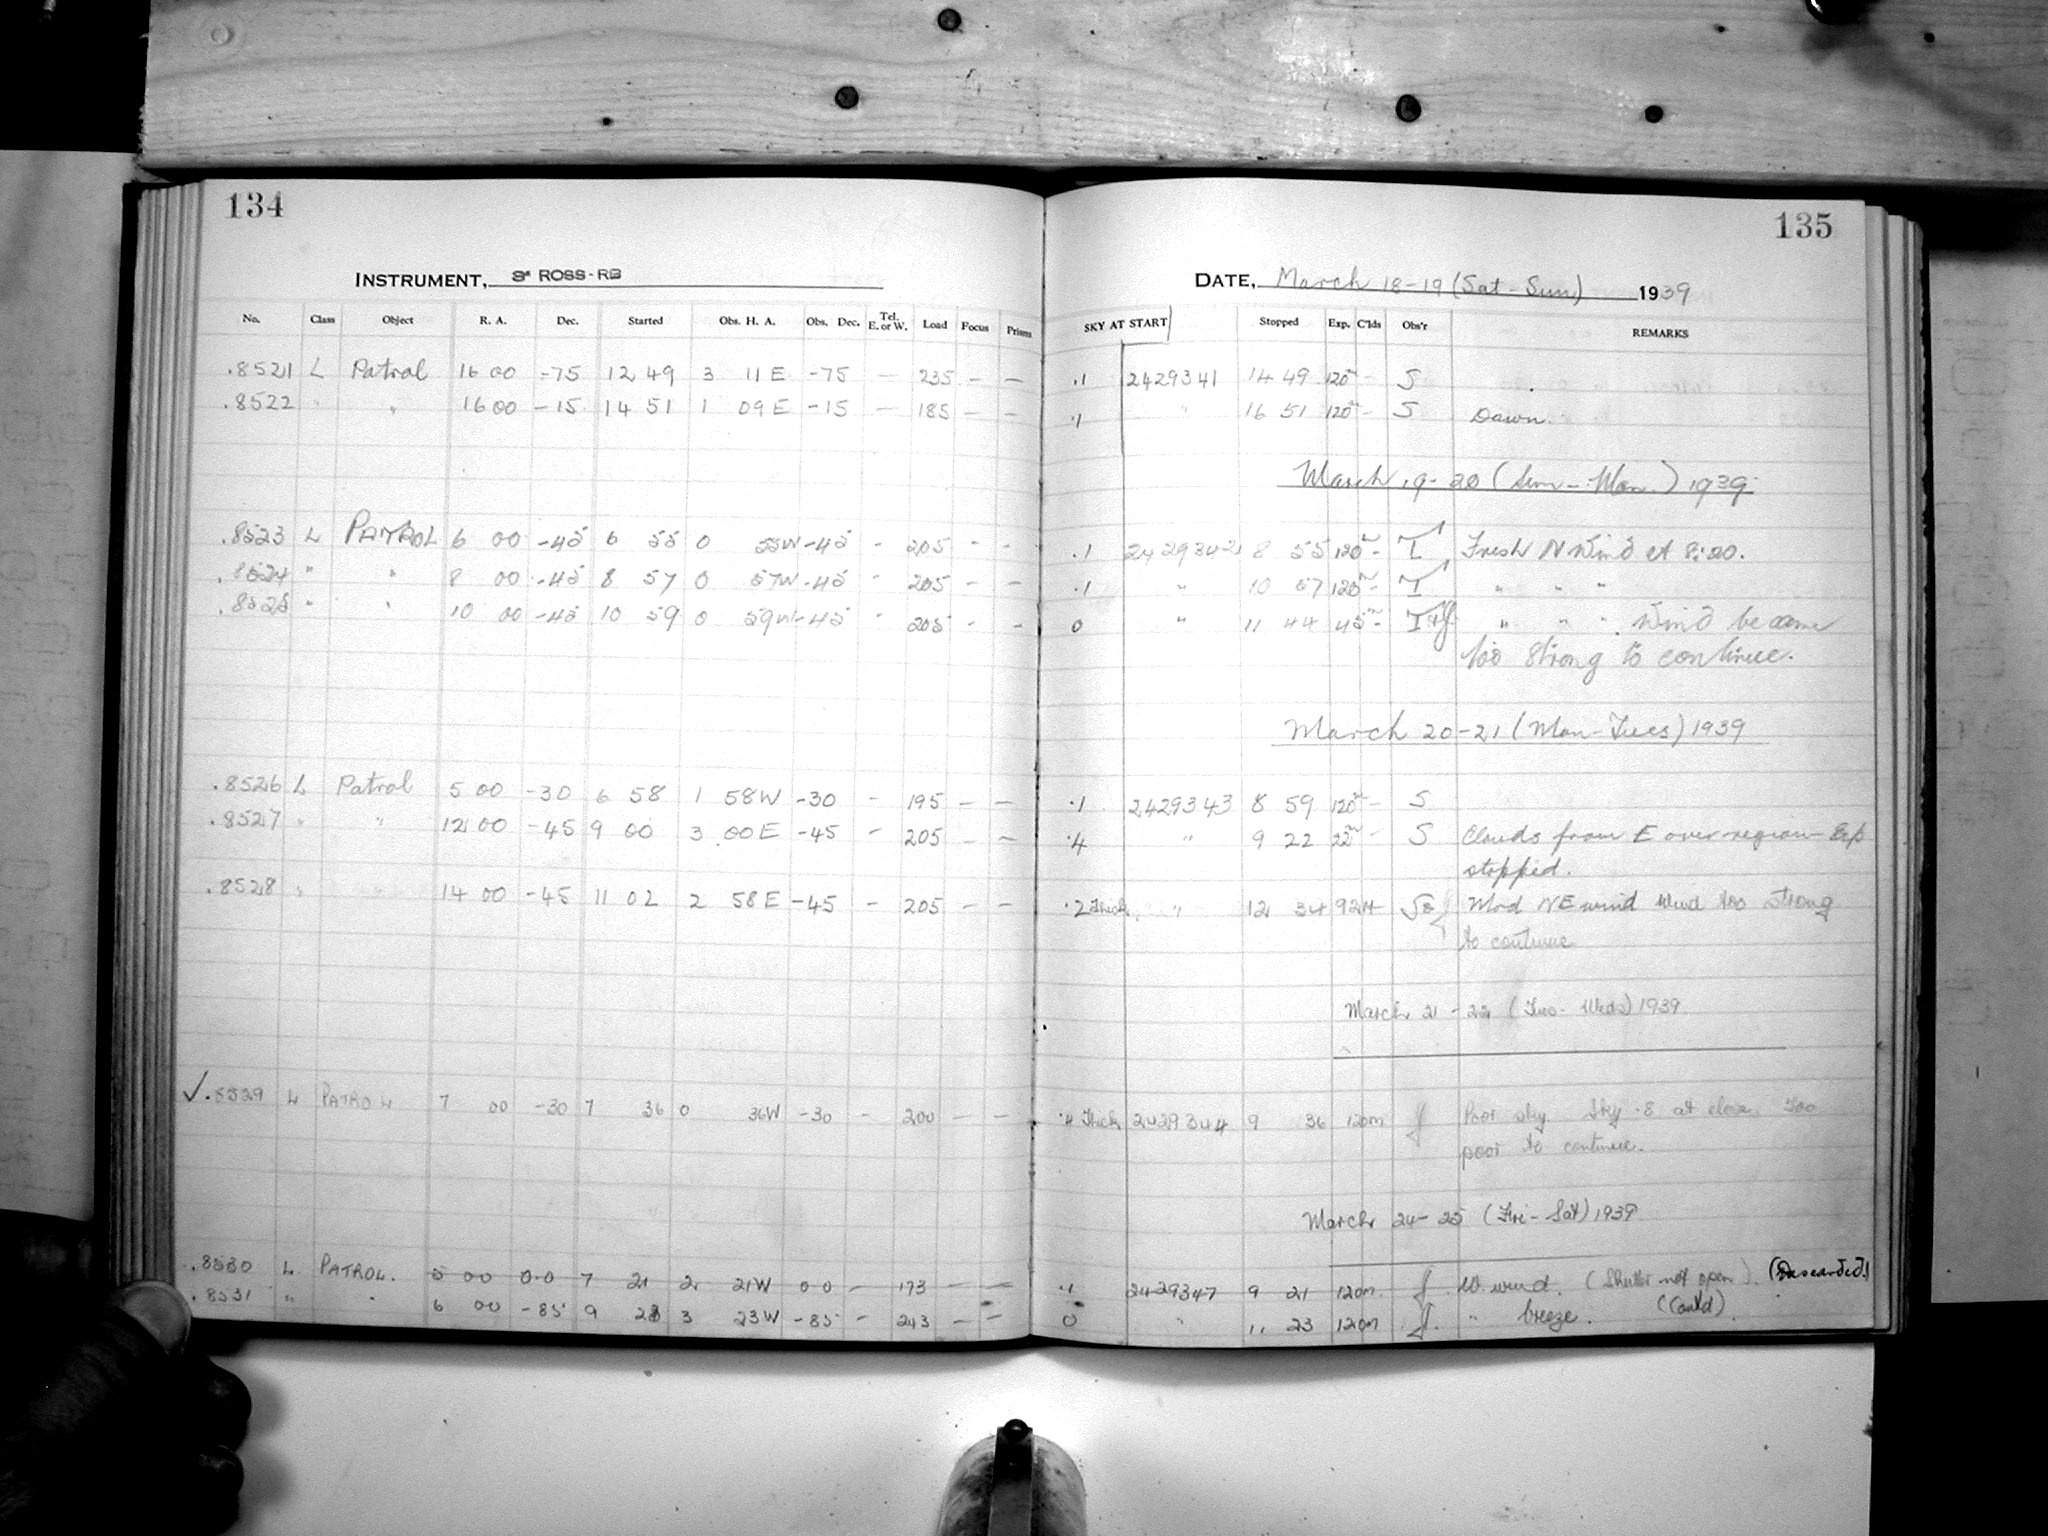 134
INSTRUMENT, 3" ROSS-RB
No. Class Object R. A. Dec. Started Obs. H. A. Obs. Dec. Tel. E. or W. Load Focus Prisms
.8521 L Patrol 16 00 -75 12 49 3 11 E -75 — 235 — —
.8522 " " 16 00 -15 14 51 1 09 E -15 — 185 — —
.8523 L PATROL 6 00 -45 6 55 0 55W -45 - 205 - -
.8524 " " 8 00 -45 8 57 0 57W -45 - 205 - -
.8525 " " 10 00 -45 10 59 0 59W -45 - 205 - -
.8526 L Patrol 5 00 -30 6 58 1 58W -30 - 195 — —
.8527 " " 12 00 -45 9 00 3 00 E -45 - 205 — —
.8528 " " 14 00 -45 11 02 2 58 E -45 - 205 — —
✓.8529 L PATROL 7 00 -30 7 36 0 36W -30 — 200 — —
.8530 L PATROL. 5 00 00 7 21 2 21W 00 — 173 — —
.8531 " " 6 00 -85 9 23 3 23W -85 — 243 — —
135
DATE, March 18-19 (Sat-Sun) 1939
SKY AT START Stopped Exp. C'lds Obs'r REMARKS
.1 2429341 14 49 120m - S
.1 " 16 51 120m - S Dawn.
March 19-20 (Sun-Mon.) 1939
.1 2429342 8 55 120m - T Fresh N Wind at 8:20.
.1 " 10 57 120m - T " " "
0 " 11 44 45m - " " ". Wind became
too strong to continue.
March 20-21 (Mon-Tues) 1939
.1 2429343 8 59 120m - S
.4 " 9 22 22m - S Clouds from E over region Exp
stopped.
.2 Thick " 12 34 92m Mod NE wind Wind too strong
to continue
March 21-22 (Tues-Weds) 1939
.4 Thick 2429344 9 36 120m J Poor sky. Sky .8 at close. Too
poor to continue.
March 24-25 (Fri-Sat) 1939
.1 2429347 9 21 120m J W. wind. (Shutter not open). (Discarded!)
0 " 11 23 120m J. " breeze. (Cont'd)